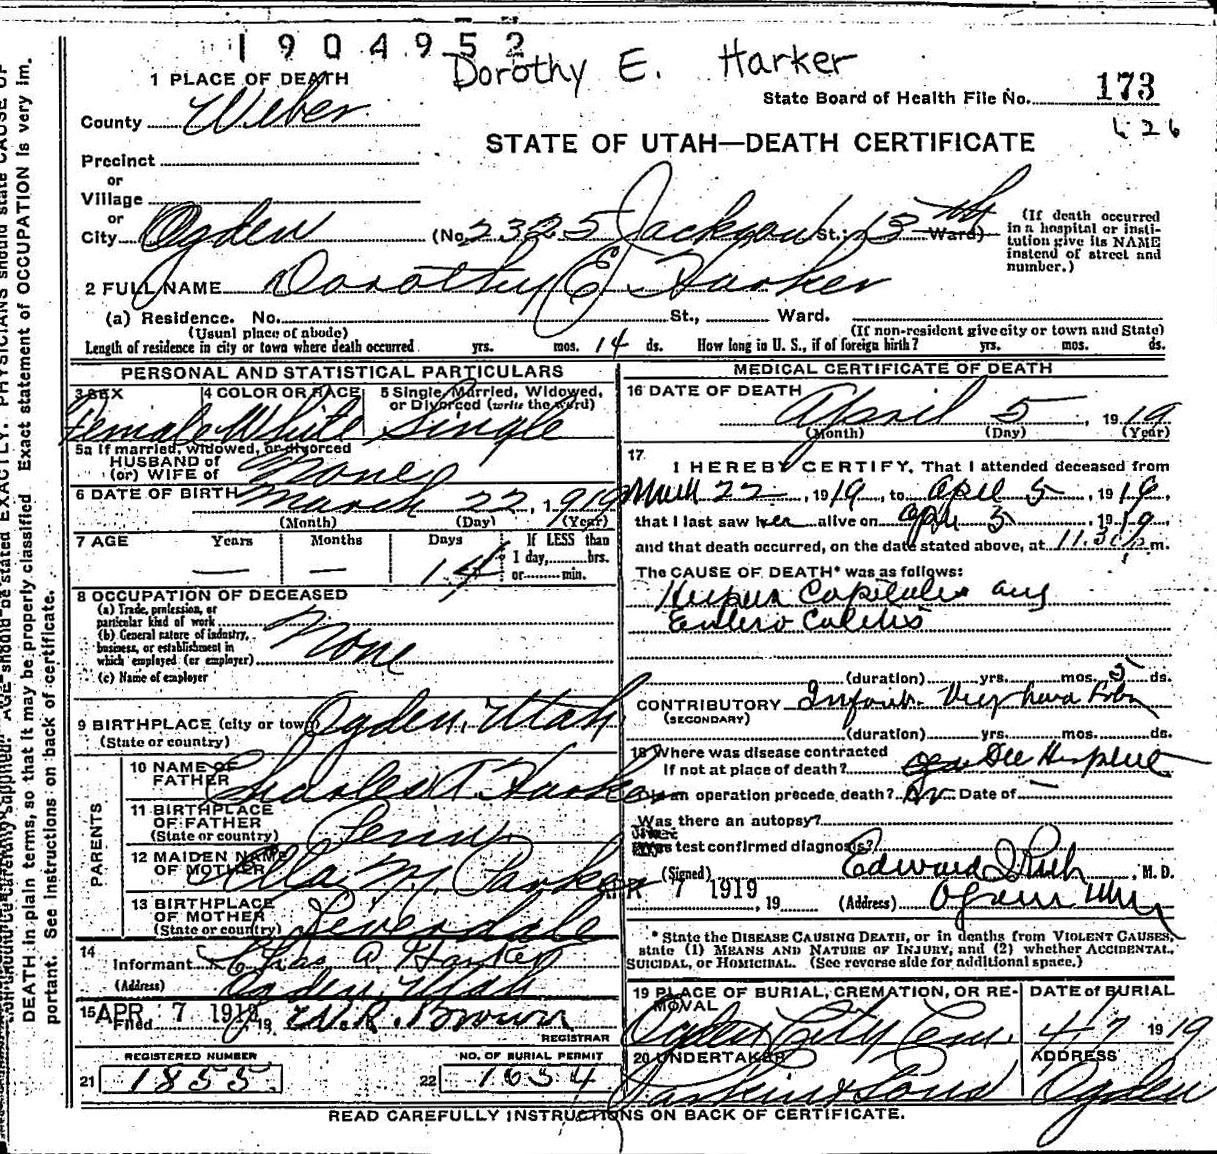 1904952
Dorothy E. Harker
1 PLACE OF DEATH
State Board of Health File No. 173
County Weber
626
STATE OF UTAH—DEATH CERTIFICATE
Precinct
or
Village
or
City Ogden (No. 2325 Jackson St.; 13th Ward)
(If death occurred in a hospital or insti-
tution give its NAME
instead of street and
number.)
2 FULL NAME Dorothy E Harker
(a) Residence. No. St., Ward.
(Usual place of abode) (If non-resident give city or town and State)
Length of residence in city or town where death occurred yrs. mos. 14 ds. How long in U. S., if of foreign birth? yrs. mos. ds.
PERSONAL AND STATISTICAL PARTICULARS
3 SEX 4 COLOR OR RACE 5 Single, Married, Widowed,
or Divorced (write the word)
Female White Single
5a If married, widowed, or divorced
HUSBAND of
(or) WIFE of None
6 DATE OF BIRTH March 22, 1919
(Month) (Day) (Year)
7 AGE Years Months Days If LESS than
1 day, hrs.
— — 14 or min.
8 OCCUPATION OF DECEASED
(a) Trade, profession, or
particular kind of work
(b) General nature of industry,
business, or establishment in
which employed (or employer)
None
(c) Name of employer
9 BIRTHPLACE (city or town) Ogden, Utah
(State or country)
PARENTS
10 NAME OF
FATHER Charles A. Harker
11 BIRTHPLACE
OF FATHER
(State or country) Penn
12 MAIDEN NAME
OF MOTHER Ella M. Parker
13 BIRTHPLACE
OF MOTHER
(State or country)
14
Informant Chas A. Harker
(Address) Ogden, Utah
15 APR 7 1919
Filed , 19 W.R. Brown
REGISTRAR
REGISTERED NUMBER NO. OF BURIAL PERMIT
21 1855 22 1654
MEDICAL CERTIFICATE OF DEATH
16 DATE OF DEATH
April 5 1919
(Month) (Day) (Year)
17
I HEREBY CERTIFY, That I attended deceased from
22, 1919, to April 5, 1919,
that I last saw her alive on April 5, 1919,
and that death occurred, on the date stated above, at 11.30 p m.
The CAUSE OF DEATH* was as follows:
Entero Colitis
(duration) yrs. mos. 5 ds.
CONTRIBUTORY
(SECONDARY)
(duration) yrs. mos. ds.
18 Where was disease contracted
If not at place of death? Dee Hospital
Did an operation precede death? No Date of —
Was there an autopsy?
What test confirmed diagnosis?
(Signed) Edward I Rich, M. D.
APR 7 1919, 19 (Address) Ogden Utah
* State the DISEASE CAUSING DEATH, or in deaths from VIOLENT CAUSES,
state (1) MEANS AND NATURE OF INJURY, and (2) whether ACCIDENTAL,
SUICIDAL, or HOMICIDAL. (See reverse side for additional space.)
19 PLACE OF BURIAL, CREMATION, OR RE-
MOVAL DATE of BURIAL
Ogden City Cem. 4/7 1919
20 UNDERTAKER ADDRESS
Larkin & Sons Ogden
READ CAREFULLY INSTRUCTIONS ON BACK OF CERTIFICATE.
AGE should be stated EXACTLY. PHYSICIANS should state CAUSE OF
DEATH in plain terms, so that it may be properly classified. Exact statement of OCCUPATION is very im-
portant. See instructions on back of certificate.